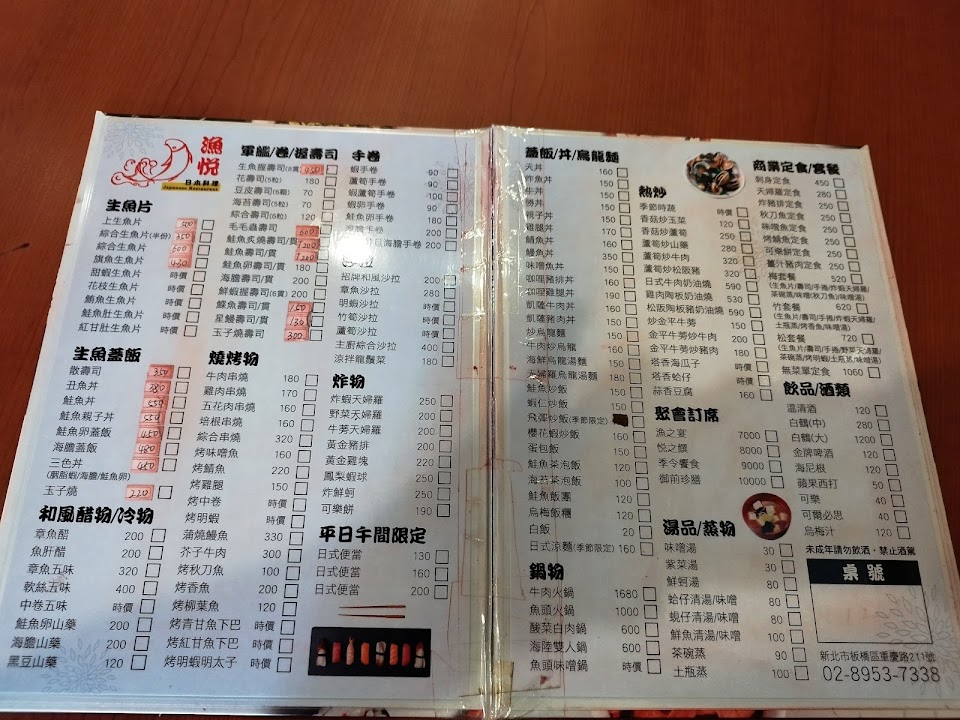 漁悅
日本料理
Japanese Restaurant
生魚片
上生魚片
綜合生魚片(半份) 350
綜合生魚片 600
旗魚生魚片
甜蝦生魚片 時價
花枝生魚片 時價
鮪魚生魚片 時價
鮭魚肚生魚片 時價
紅甘肚生魚片 時價
生魚蓋飯
散壽司 350
丑魚丼 380
鮭魚丼 550
鮭魚親子丼 550
鮭魚卵蓋飯 450
海膽蓋飯 480
三色丼 450
(胭脂蝦/海膽/鮭魚卵)
玉子燒 220
和風醋物/冷物
章魚醋 200
魚肝醋 200
章魚五味 320
軟絲五味 400
中卷五味 時價
鮭魚卵山藥 200
海膽山藥 200
黑豆山藥 120
軍艦/卷/握壽司
生魚握壽司(8貫)
花壽司(5粒) 180
豆皮壽司(6顆) 70
海苔壽司(6粒) 70
綜合壽司(6粒) 120
毛毛蟲壽司 600
鮭魚炙燒壽司/貫
鮭魚壽司/貫
鮭魚卵壽司/貫 180
海膽壽司/貫 200
鮮蝦握壽司(6貫) 200
鰻魚壽司/貫 150
星鰻壽司/貫 130
玉子燒壽司 300
燒烤物
牛肉串燒 180
雞肉串燒 170
五花肉串燒 160
培根串燒 160
綜合串燒 320
烤味噌魚 160
烤鯖魚 220
烤雞腿 150
烤中卷 時價
烤明蝦 時價
蒲燒鰻魚 330
芥子牛肉 300
烤秋刀魚 100
烤香魚 200
烤柳葉魚 120
烤青甘魚下巴 時價
烤紅甘魚下巴 時價
烤明蝦明太子 時價
手卷
蝦手卷 90
蘆筍手卷 90
蝦筍手卷 90
蝦卵手卷 90
鮭魚卵手卷 180
海膽手卷 200
海膽手卷 200
沙拉
招牌和風沙拉 200
章魚沙拉 280
明蝦沙拉 時價
竹筍沙拉 時價
蘆筍沙拉 時價
主廚綜合沙拉 400
涼拌龍鬚菜 180
炸物
炸蝦天婦羅 250
野菜天婦羅 200
牛蒡天婦羅 200
黃金豬排 200
黃金雞塊 220
鳳梨蝦球 250
炸鮮蚵 250
可樂餅 190
平日午間限定
日式便當 130
日式便當 160
日式便當 200
蓋飯/丼/烏龍麵
天丼 160
炸魚丼 150
牛丼 150
勝丼 150
親子丼 150
雞腿丼 170
鯖魚丼 160
鰻魚丼 350
味噌魚丼 150
咖哩豬排丼 160
咖哩雞腿丼 190
凱薩牛肉丼 160
凱薩豬肉丼 150
炒烏龍麵 150
牛肉炒烏龍 160
海鮮烏龍湯麵 180
天婦羅烏龍湯麵 180
鮭魚炒飯 160
蝦仁炒飯 150
飛彈炒飯(季節限定)
櫻花蝦炒飯 160
蛋包飯 150
鮭魚茶泡飯 120
海苔茶泡飯 100
鮭魚飯團 120
烏梅飯糰 120
白飯 20
日式涼麵(季節限定) 160
鍋物
牛肉火鍋 1680
魚頭火鍋 1000
酸菜白肉鍋 600
海陸雙人鍋 600
魚頭味噌鍋 時價
熱炒
季節時蔬 時價
香菇炒玉菜 190
香菇炒蘆筍 250
蘆筍炒山藥 280
蘆筍炒牛肉 320
蘆筍炒松阪豬 320
日式牛肉奶油燒 590
雞肉陶板奶油燒 530
松阪陶板豬奶油燒 590
炒金平牛蒡 150
金平牛蒡炒牛肉 200
金平牛蒡炒豬肉 180
塔香海瓜子 時價
塔香蛤仔 時價
蒜香豆腐 160
聚會訂席
漁之宴 7000
悅之饌 8000
季令饗食 9000
御前珍膳 10000
湯品/蒸物
味噌湯 30
紫菜湯 30
鮮蚵湯 80
蛤仔清湯/味噌 80
蜆仔清湯/味噌 80
鮮魚清湯/味噌 100
茶碗蒸 90
土瓶蒸 100
商業定食/套餐
刺身定食 450
天婦羅定食 280
炸豬排定食 280
秋刀魚定食 250
味噌魚定食 250
烤鯖魚定食 250
可樂餅定食 250
薑汁豬肉定食 250
梅套餐 520
(生魚片/壽司/手捲/炸蝦天婦羅/
茶碗蒸/味噌魚(秋刀魚)/味噌湯)
竹套餐 620
(生魚片/壽司/手捲/炸蝦天婦羅/
土瓶蒸/烤香魚/味噌湯)
松套餐 720
(生魚片/壽司/手捲/野菜天婦羅/
茶碗蒸/烤明蝦/土瓶蒸/味噌湯)
無菜單定食 1060
飲品/酒類
溫清酒 120
白鶴(中) 280
白鶴(大) 1200
金牌啤酒 120
海尼根 120
蘋果西打 50
可樂 40
可爾必思 40
烏梅汁 120
未成年請勿飲酒・禁止酒駕
桌號
新北市板橋區重慶路211號
02-8953-7338